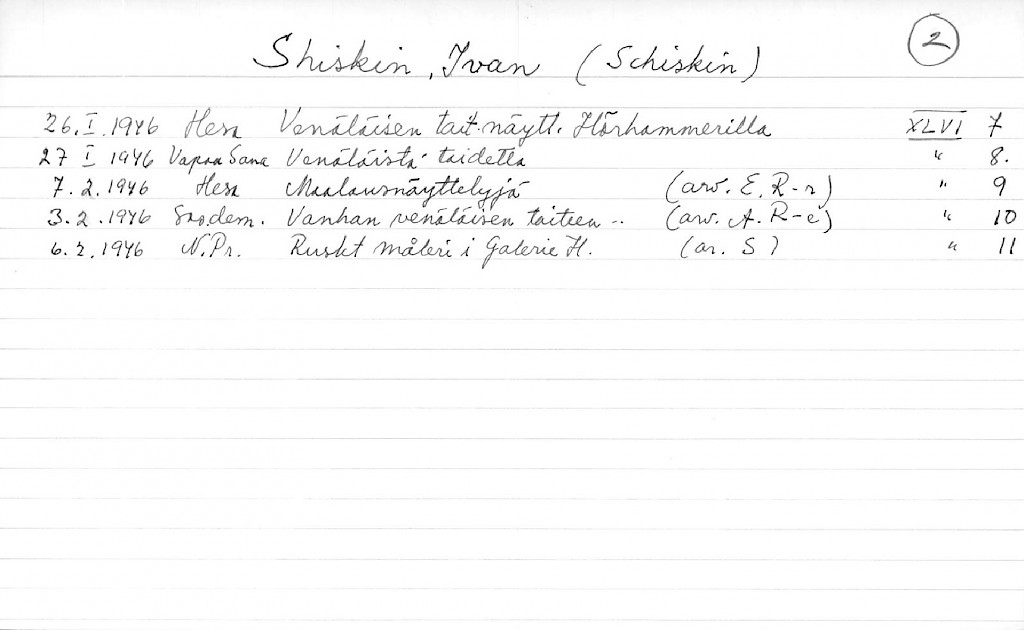 2
Shiskin, Ivan (Schiskin)
26.I.1946 Hesa Venäläisen tait.näytt. Hörhammerilla XLVI 7
27 I 1946 Vapaa Sana Venäläistä taidetta " 8.
7.2.1946 Hesa Maalausnäyttelyjä (arv. E. R-r) " 9
3.2.1946 Sos.dem. Vanhan venäläisen taiteen -- (arv. A. R-e) " 10
6.2.1946 N.Pr. Ruskt måleri i Galerie H. (ar. S) " 11